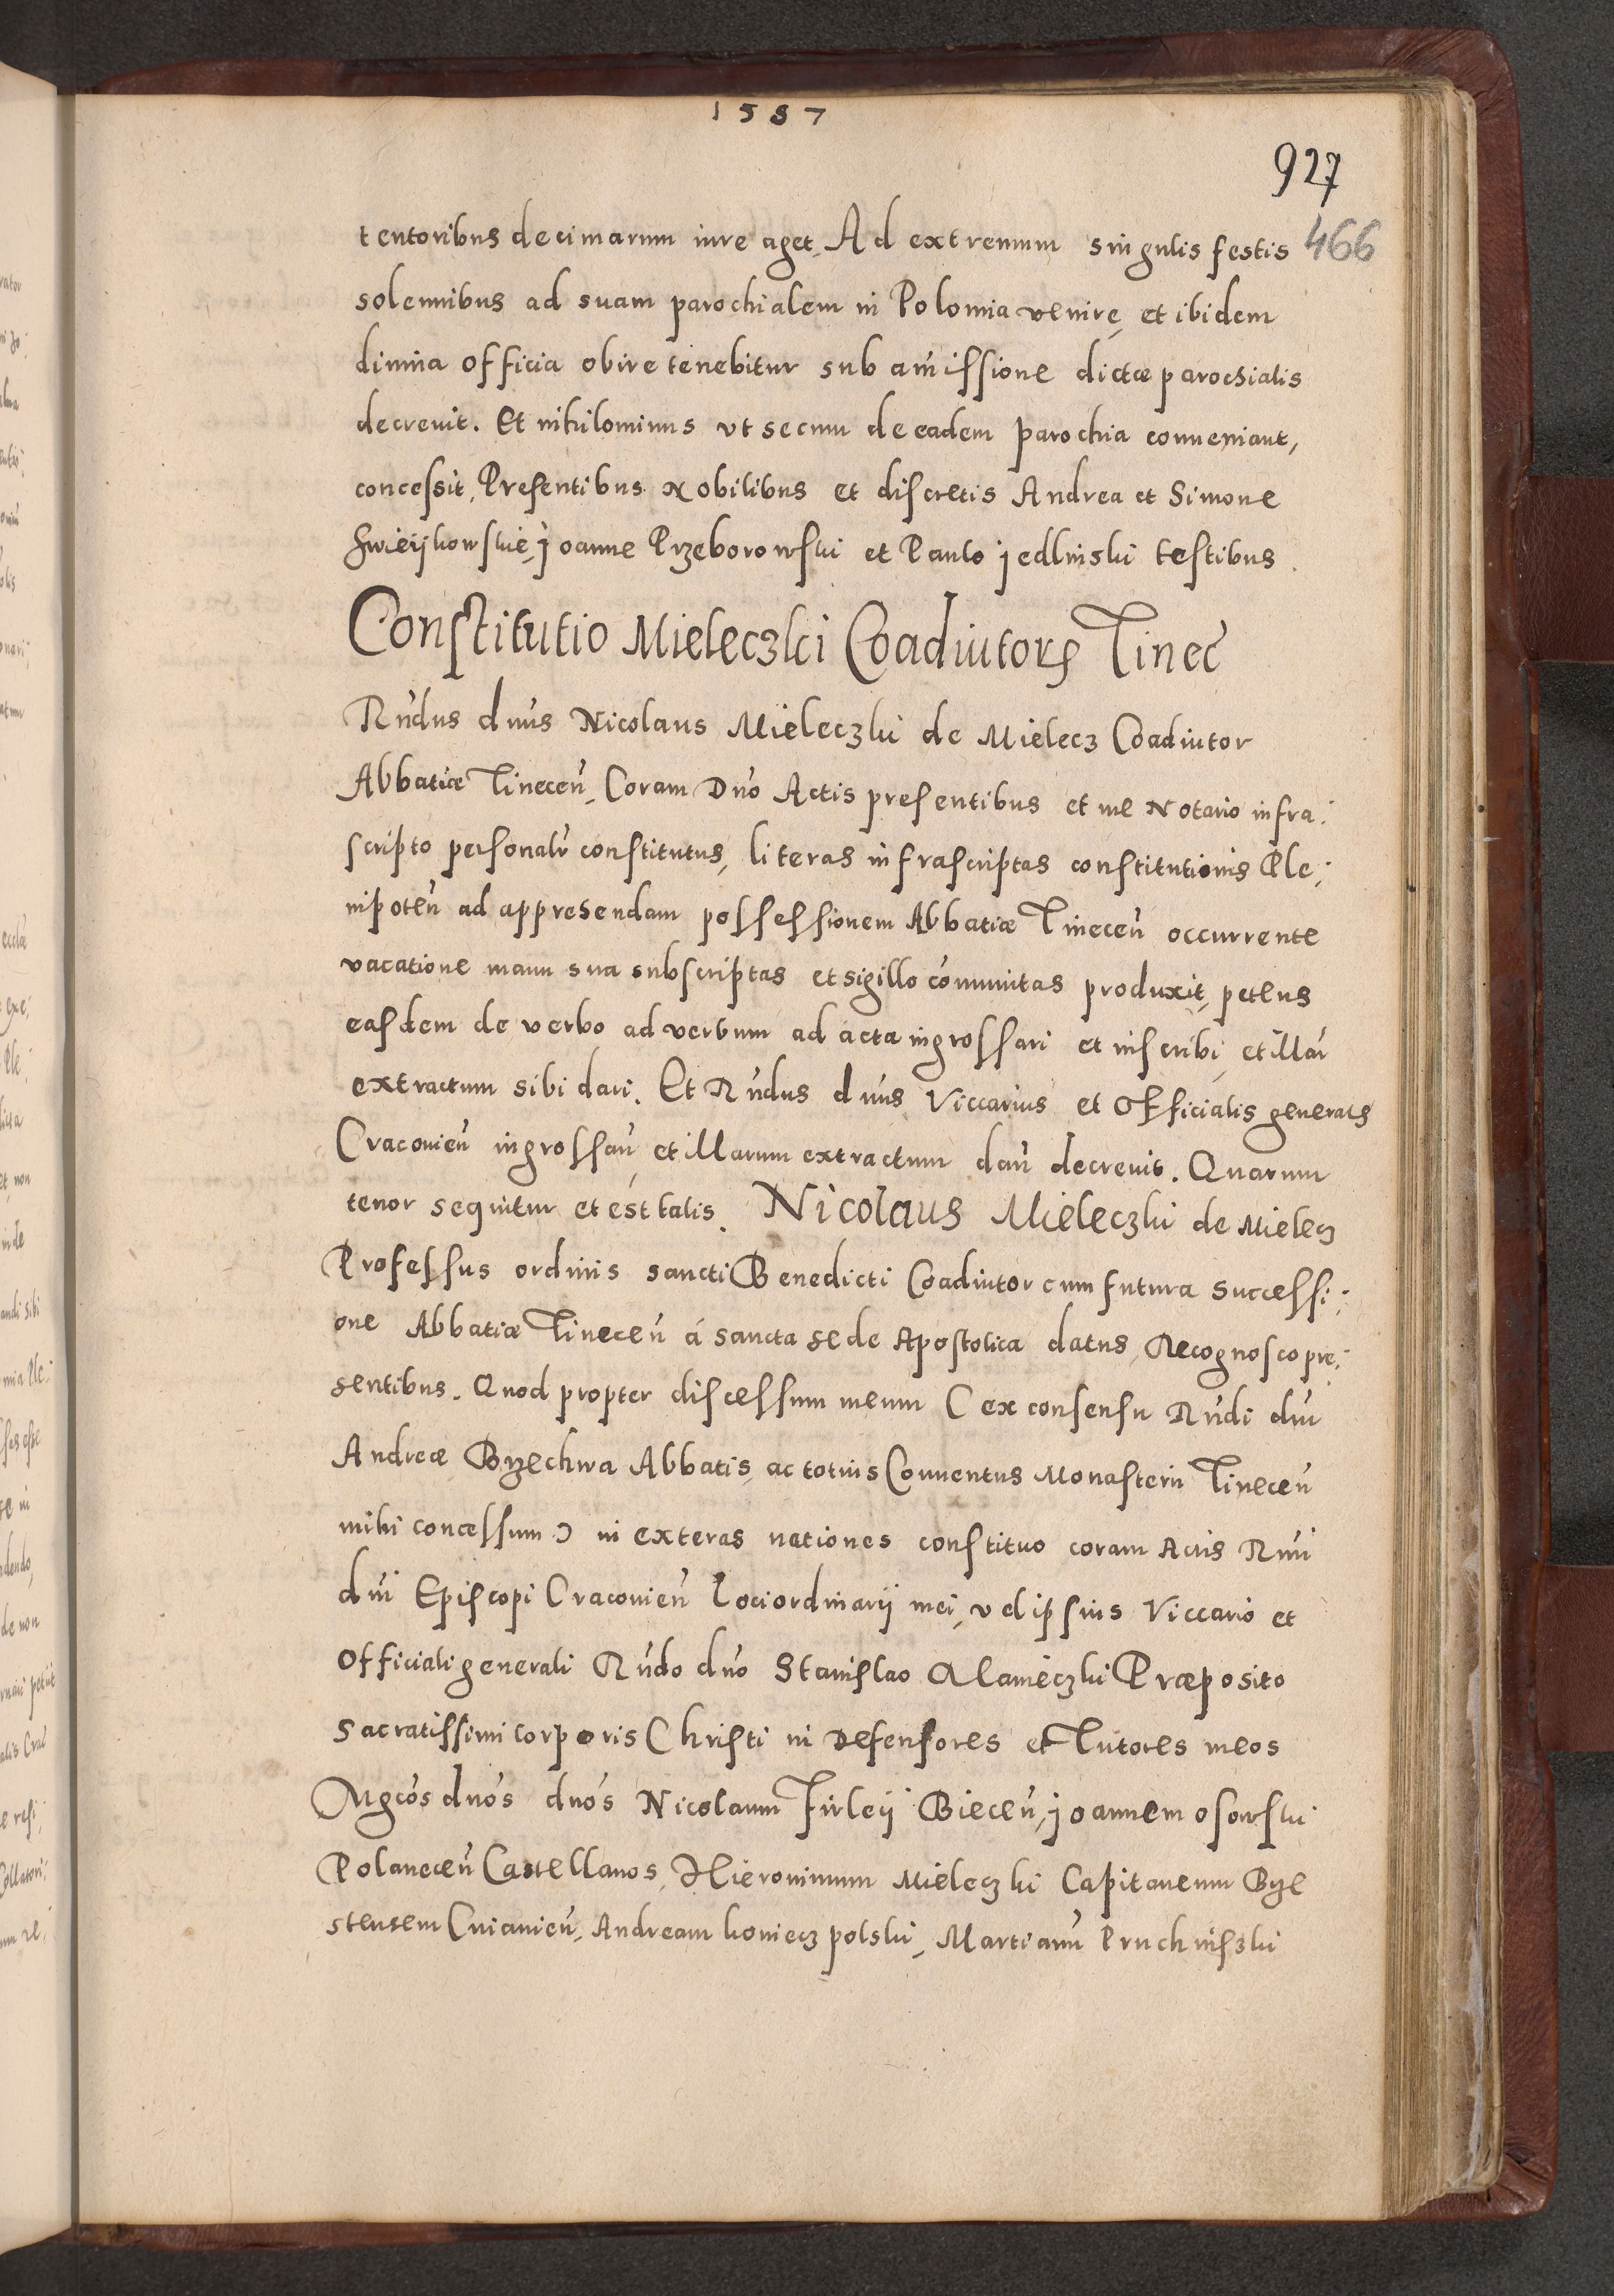 1587
927
466
tentoribus decimarum iure aget. Ad extremum singulis festis
solennibus ad suam parochialem in Polomia venire, et ibidem
diuina officia obire tenebitur sub amissione dictæ parochialis
decreuit. Et nihilominus vt secum de eadem parochia conueniant,
concessit, Presentibus Nobilibus et discretis Andrea et Simone
Joanne Przeborowski et Paulo jedlinski testibus.
Constitutio Mieleczki Coadiutoris Tinec̃
Rñdus dnũs Nicolaus Mieleczki de Mielecz Coadiutor
Abbatiæ Tineceñ, Coram Dño Actis presentibus et me Notario infra:
scripto personalr̃ constitutus, literas infrascriptas constitutionis Ple:
nipoteñ ad appresendam possessionem Abbatiæ Tineceñ occurrente
vacatione manu sua subscriptas et sigillo cõmunitas produxit, petens
easdem de verbo ad verbum ad acta ingrossari et inscribi, et illar̃
extractum sibi dari. Et Rñdus dnũs Viccarius et Officialis generalis
Cracouieñ ingrossañ et illarum extractum dañ decreuit. Quarum
tenor sequitur et est talis. Nicolaus Mieleczki de Mielecz
Professus ordinis sancti Benedicti Coadiutor cum futura successi:
one Abbatiæ Tineceñ á sancta sede Apostolica datus, Recognosco pre:
sentibus. Quod propter discessum meum (ex consensu Rñdi dnĩ
Andreæ Brzechwa Abbatis, ac totius Conuentus Monasterii Tineceñ
mihi concessum) in exteras nationes constituo coram Actis Rmi
dñi Episcopi Cracouieñ Loci ordinarij mei, vel ipsius Viccario et
Officiali generali Rñdo dño Stanislao Præposito
Sacratissimi Corporis Christi in Defensores et Tutores meos
Mgcõs dnõs dnõs Nicolaum Firleij Bieceñ, joannem osowski
Polaneceñ Castellanos, Hieronimum Mieleczki Capitaneum Brze
stensem Cuianieñ, Andream koniecz polski, Martianũ Pruchnishki